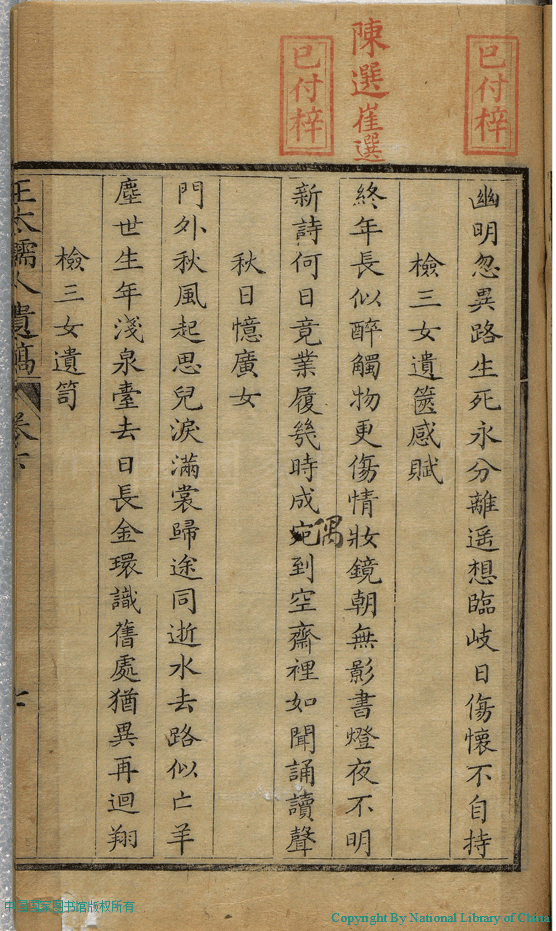 已付梓
陳選崔選
已付梓
幽明忽異路生死永分離遥想臨岐日傷懷不自持
檢三女遺篋感賦
終年長似醉觸物更傷情妝鏡朝無影書燈夜不明
新詩何日竟業履幾時成宛到空齋裡如聞誦讀聲
偶
秋日憶廣女
門外秋風起思兒淚滿裳歸途同逝水去路似亡羊
塵世生年淺泉臺去日長金環識舊處猶異再迴翔
檢三女遺笥
王太孺人遺稿
卷下
七
中国国家图书馆版权所有
Copyright By National Library of China